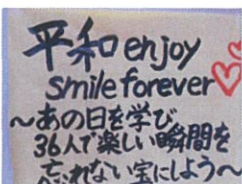 平和enjoy
smile forever
～あの日を学び
36人で楽しい瞬間を
忘れない宝にしよう～